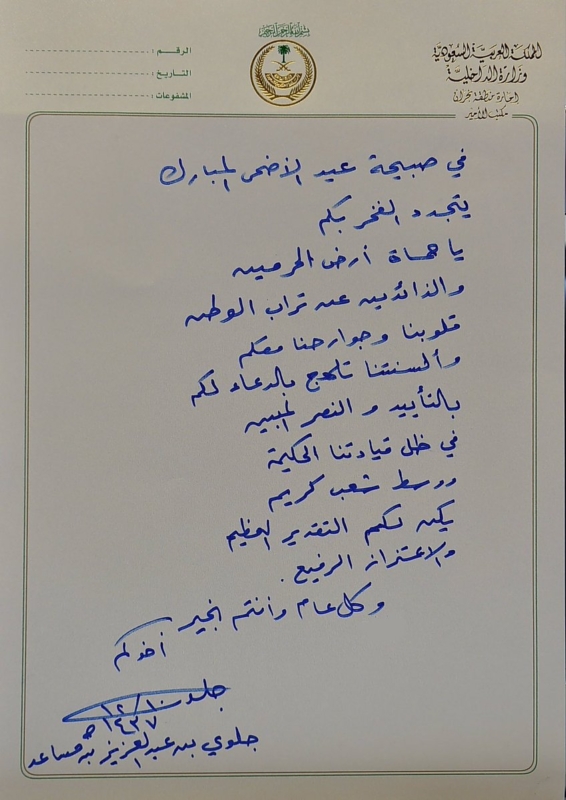 بسم الله الرحمن الرحيم
المملكة العربية السعودية
وزارة الداخلية
إمارة منطقة نجران
مكتب الأمير
الرقـم :
التـاريخ :
المشفوعات :
في صبيحة عيد الأضحى المبارك
يتجدد الفخر بكم
يا حماة أرض الحرمين
والذائدين عن تراب الوطن
قلوبنا وجوارحنا معكم
وألسنتنا تلهج بالدعاء لكم
بالتأييد و النصر المبين
في ظل قيادتنا الحكيمة
ووسط شعب كريم
يكن لكم التقدير العظيم
والاعتزاز الرفيع .
وكل عام وأنتم بخير
أخوكم
جلوي
١٢/١٠
١٤٣٧هـ
جلوي بن عبدالعزيز بن مساعد